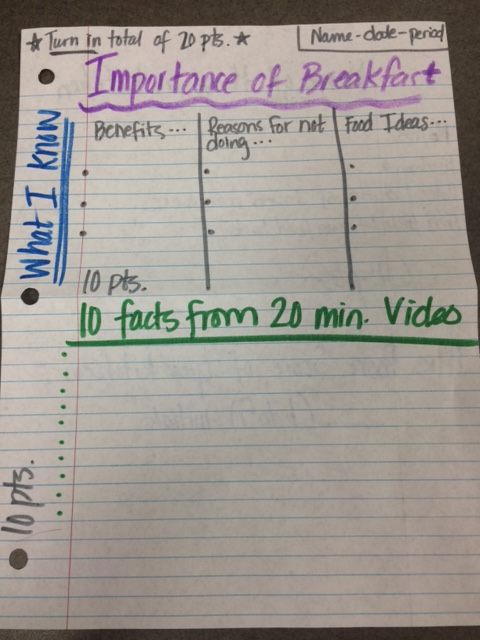 ★ Turn in total of 20 pts. ★
Name-date-period
Importance of Breakfast
What I know
Benefits...
Reasons for not
doing...
Food Ideas...
10 pts.
10 facts from 20 min. Video
10 pts.